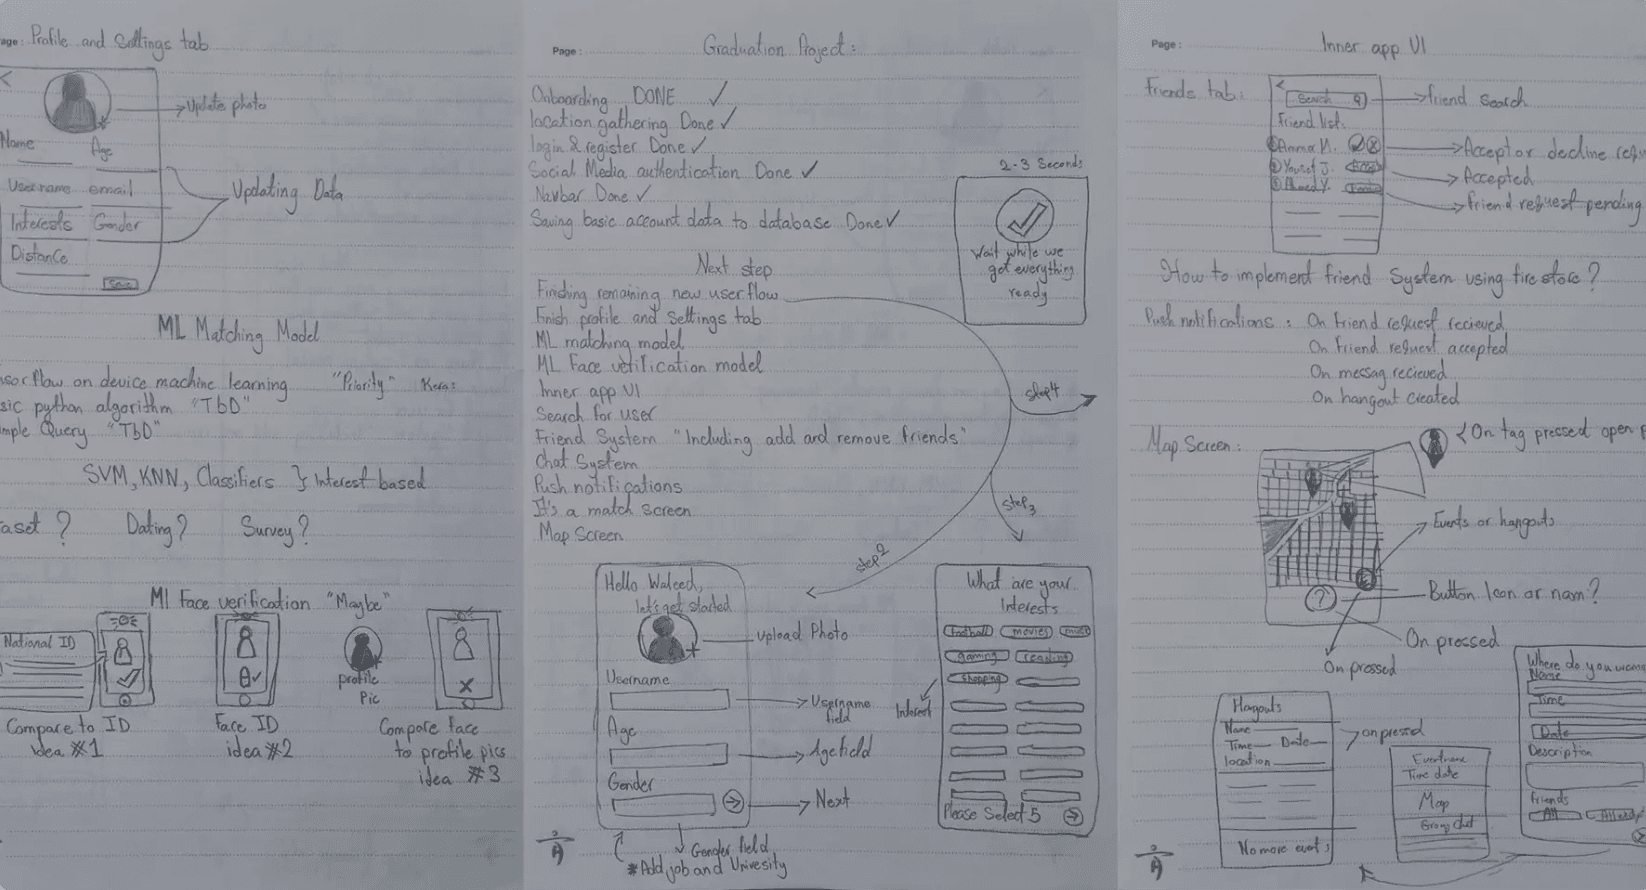 age: Profile and Settings tab
Update photo
Name
Age
Username email
Updating Data
Interests Gender
Distance
Save
ML Matching Model
sorflow on device machine learning "Priority" Keras
sic python algorithm "TbD"
mple Query "TbD"
SVM, KNN, Classifiers } Interest based
aset ? Dating? Survey?
Ml Face verification "Maybe"
National ID
profile
Pic
Compare to ID
idea #1
Face ID
idea #2
Compare face
to profile pics
idea #3
Page: Graduation Project:
Onboarding DONE ✓
location gathering Done ✓
login & register Done ✓
Social Media authentication Done ✓
Navbar Done ✓
Saving basic account data to database Done ✓
2-3 Seconds
Wait while we
get everything
ready
Next step
Finishing remaining new user flow
Finish profile and Settings tab
ML matching model
ML Face verification model
Inner app UI
Search for user
Friend System "Including add and remove friends"
Chat System
Push notifications
It's a match screen
Map Screen
step4
step3
step2
Hello Waleed,
let's get started
upload Photo
Username
Username
field
Age
Age field
Gender
Next
Gender field
*Add job and Univesity
What are your
Interests
football movies music
gaming reading
shopping
Interest
Please Select 5
Page: Inner app UI
Friends tab:
Search
friend search
Friend list:
Ammar M.
Accept or decline requ
Yousef J.
Accepted
Ahmed Y.
friend request pending
How to implement friend System using fire store?
Push notifications : On friend request recieved
On friend request accepted
On messag recieved
On hangout created
Map Screen:
On tag pressed open p
Events or hangouts
Button Icon or nam?
?
On pressed
On pressed
Hangouts
Name
Time Date
location
No more events
on pressed
Event name
Time date
Map
Group chat
Where do you wanna
Name
Time
Date
Description
Friends
All